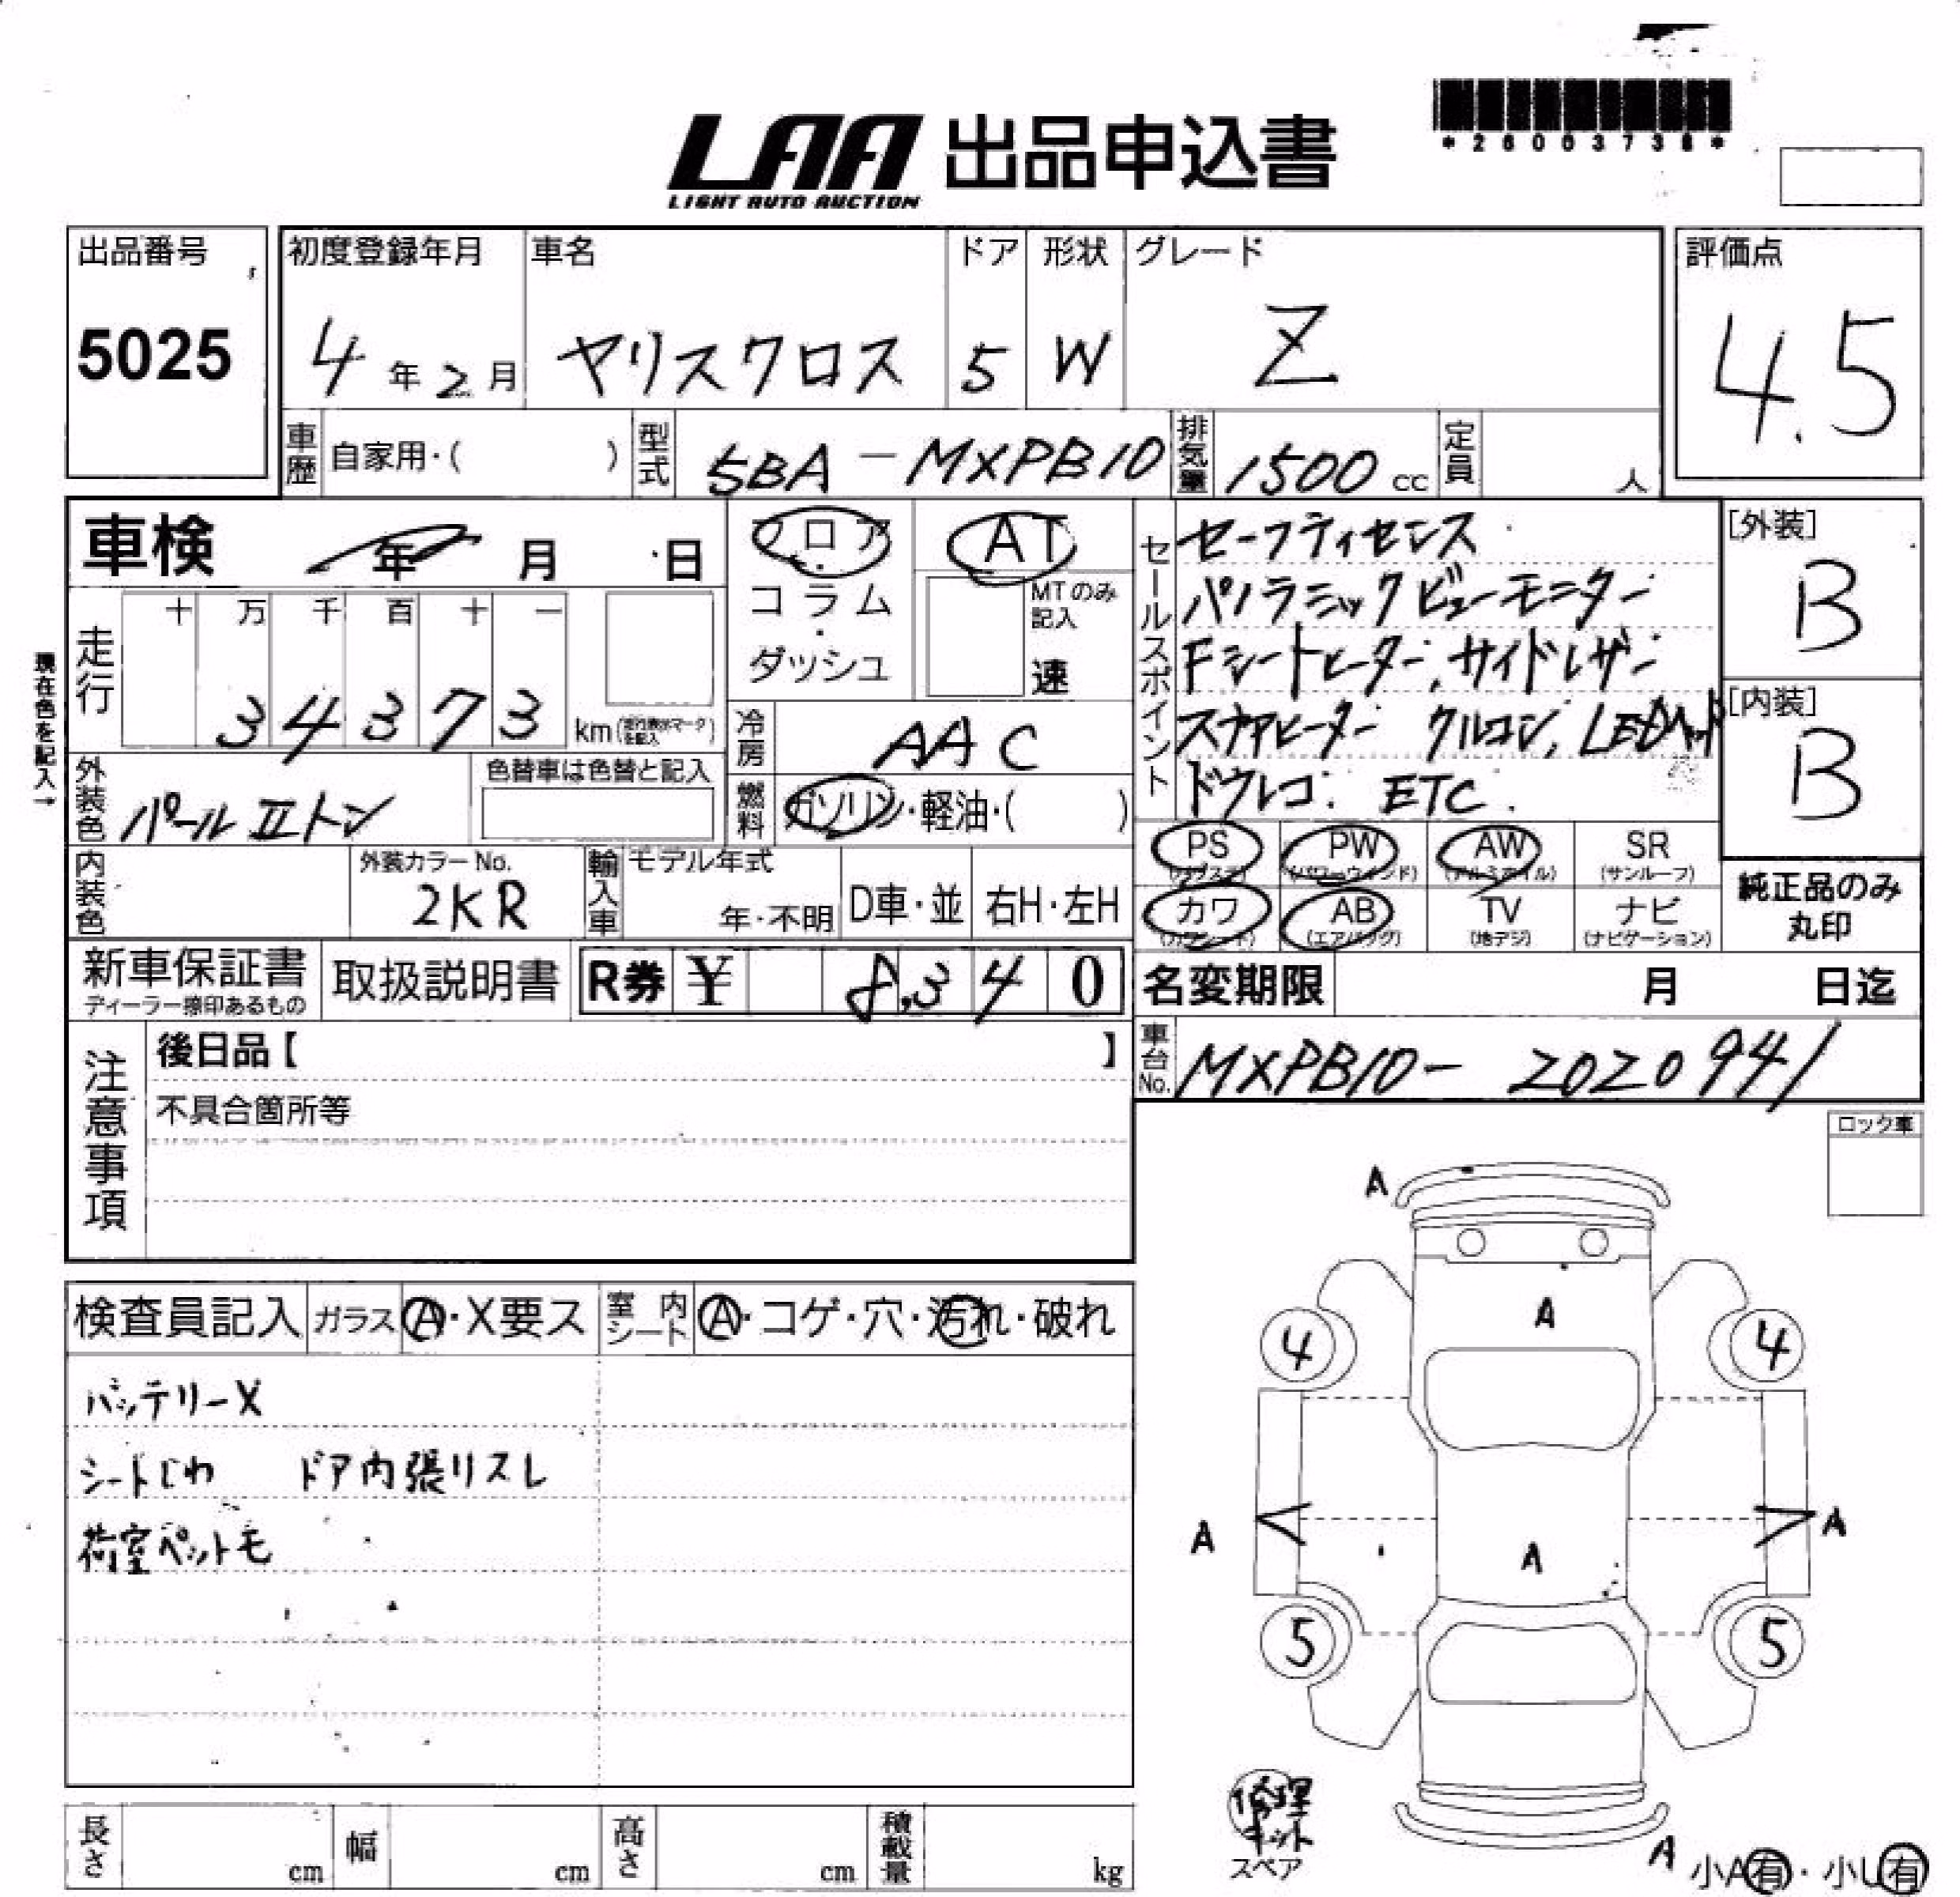 LAA 出品申込書
LIGHT AUTO AUCTION
出品番号
5025
初度登録年月
4年2月
車名
ヤリスクロス
ドア
5
形状
W
グレード
Z
評価点
4.5
車歴
自家用・( )
型式
5BA-MXPB10
排気量
1500cc
定員
人
車検 年 月 日
フロア
コラム
・
ダッシュ
AT
MTのみ
記入
速
現在色を記入→
走行
十 万 千 百 十 一
34373
km
冷房
AAC
外装色
パールⅡトン
色替車は色替と記入
燃料
ガソリン・軽油・( )
内装色
外装カラーNo.
2KR
輸入車
モデル年式
年・不明
D車・並
右H・左H
セールスポイント
セーフティセンス
パノラミックビューモニター
Fシートヒーター,サイドレザー
ステアヒーター クルコン, LEDヘッド
ドウレコ. ETC.
[外装]
B
[内装]
B
PS
(パワステ)
PW
(パワーウィンド)
AW
(アルミホイル)
SR
(サンルーフ)
カワ
(カワシート)
AB
(エアバッグ)
TV
(地デジ)
ナビ
(ナビゲーション)
純正品のみ
丸印
新車保証書
ディーラー捺印あるもの
取扱説明書
R券 ¥ 8,340
名変期限 月 日迄
車台No.
MXPB10-2020941
注意事項
後日品【 】
不具合箇所等
ロック車
検査員記入
ガラス
A・X要ス
室内
シート
A・コゲ・穴・汚れ・破れ
バッテリーX
シートしわ ドア内張リスレ
荷室ペットモ
A
A
4
4
A
A
A
5
5
修理
キット
スペア
A
小A有・小U有
長さ
cm
幅
cm
高さ
cm
積載量
kg